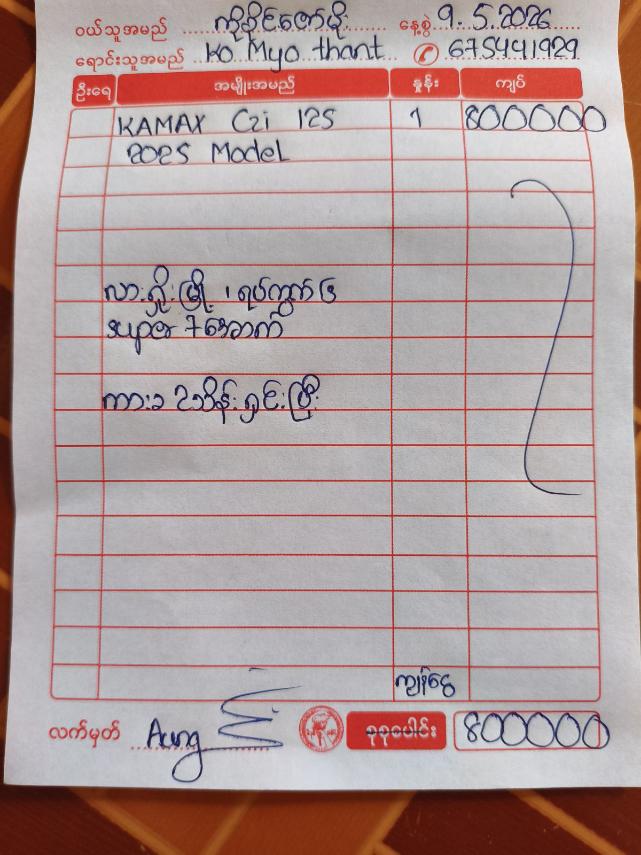 ဝယ်သူအမည် ကိုခိုင်ဇော်မိုး နေ့စွဲ 9.5.2026
ရောင်းသူအမည် Ko Myo thant 675441929
ဦးရေ အမျိုးအမည် နှုန်း ကျပ်
KAMAX C2i 125 1 800000
2025 Model
လားရှိုးမြို့၊ ရပ်ကွက် ၆
နယ်မြေ 7အောက်
ကားခ 2သိန်းရှင်းပြီး
ကျန်ငွေ
လက်မှတ် Aung စုစုပေါင်း 800000